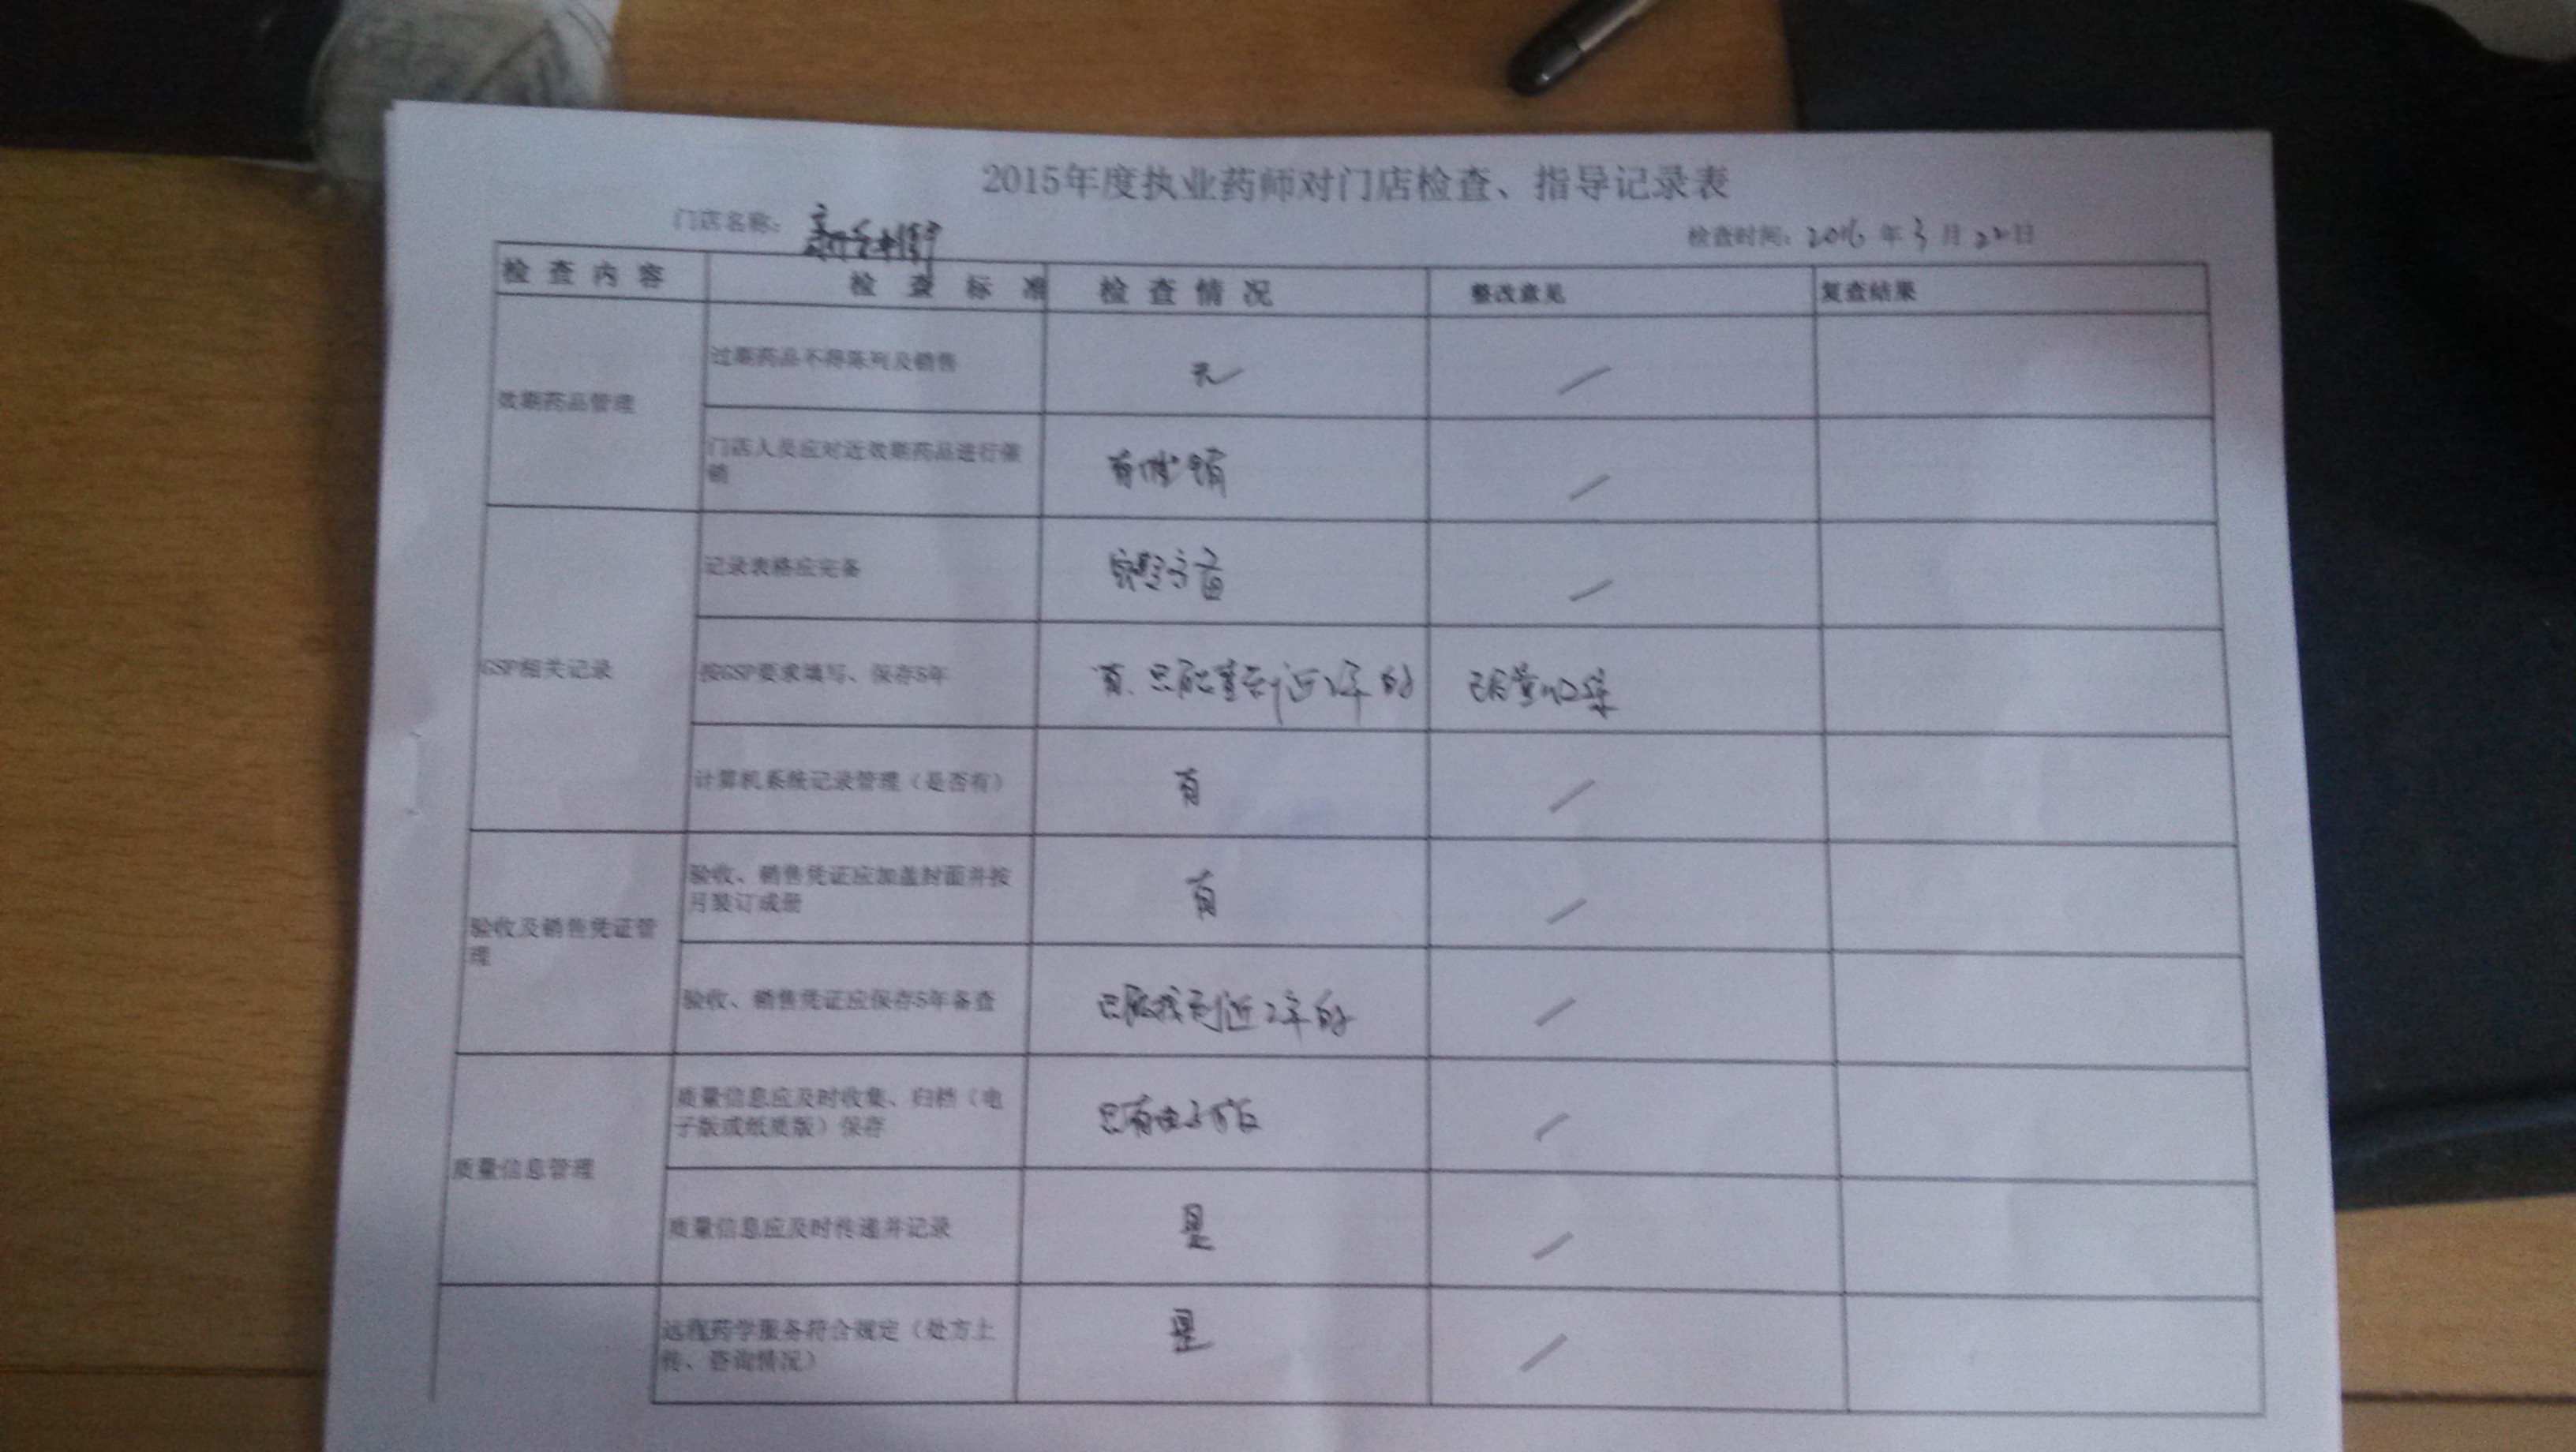 2015年度执业药师对门店检查、指导记录表
门店名称：
检查时间：2016年3月22日
检查内容 检查标准 检查情况 整改意见 复查结果
效期药品管理
过期药品不得陈列及销售 无
门店人员应对近效期药品进行催
销
有催销
GSP相关记录
记录表格应完备
按GSP要求填写、保存5年 有、只能查到近2年的
计算机系统记录管理（是否有） 有
验收及销售凭证管
理
验收、销售凭证应加盖封面并按
月装订成册
有
验收、销售凭证应保存5年备查 只能找到近2年的
质量信息管理
质量信息应及时收集、归档（电
子版或纸质版）保存
只有电子版
质量信息应及时传递并记录 是
远程药学服务符合规定（处方上
传、咨询情况）
是